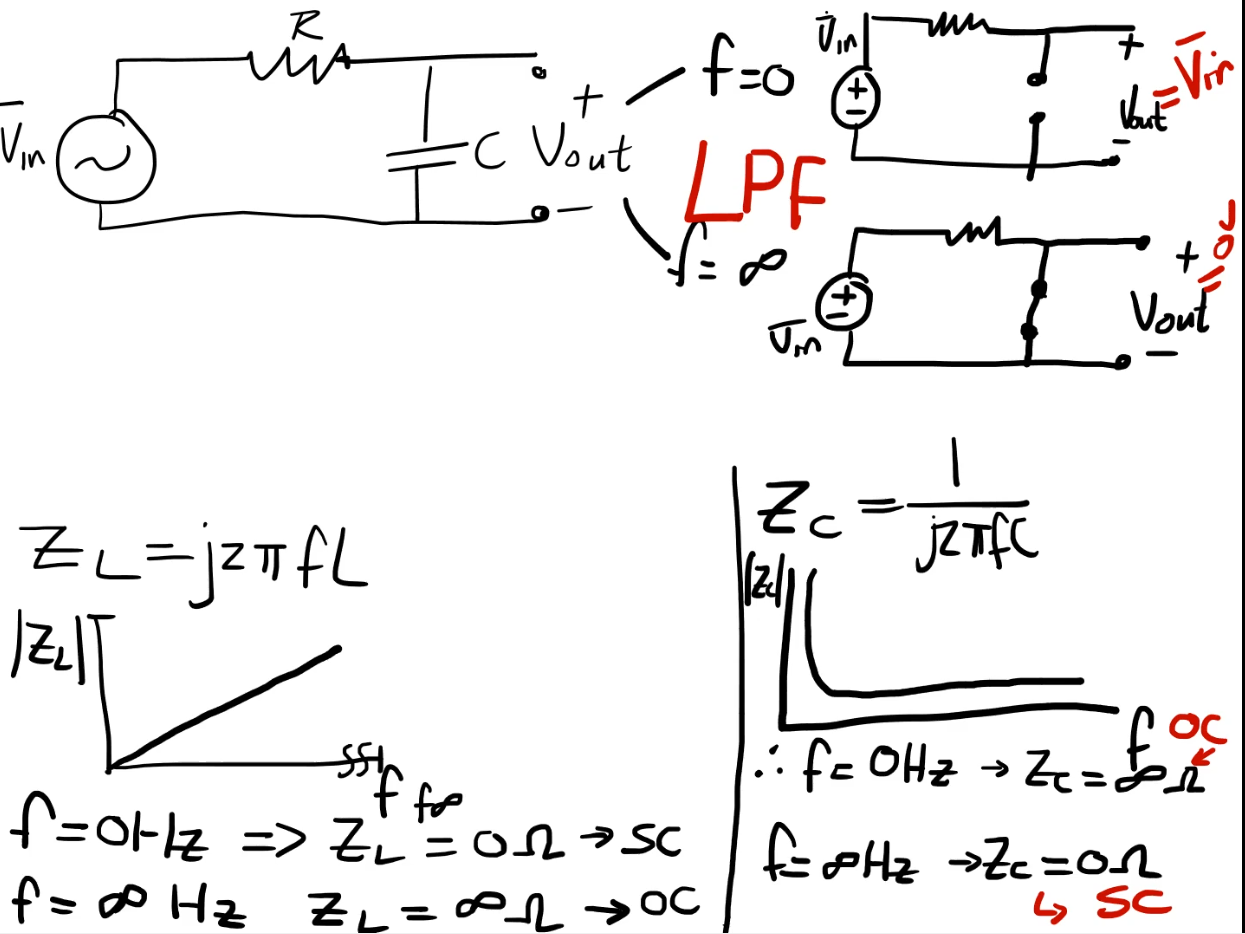 R
V̅in
C
+
Vout
−
f=0
LPF
f=∞
V̅in
+
−
+
Vout
−
=V̅in
V̅in
+
−
+
Vout
−
=0V
Z_L=j2πfL
|Z_L|
f
f∞
f=0Hz => Z_L=0Ω→SC
f=∞Hz Z_L=∞Ω→OC
Z_C=1/j2πfC
|Z_C|
f
OC
∴f=0Hz→Z_C=∞Ω
f=∞Hz→Z_C=0Ω
↳SC